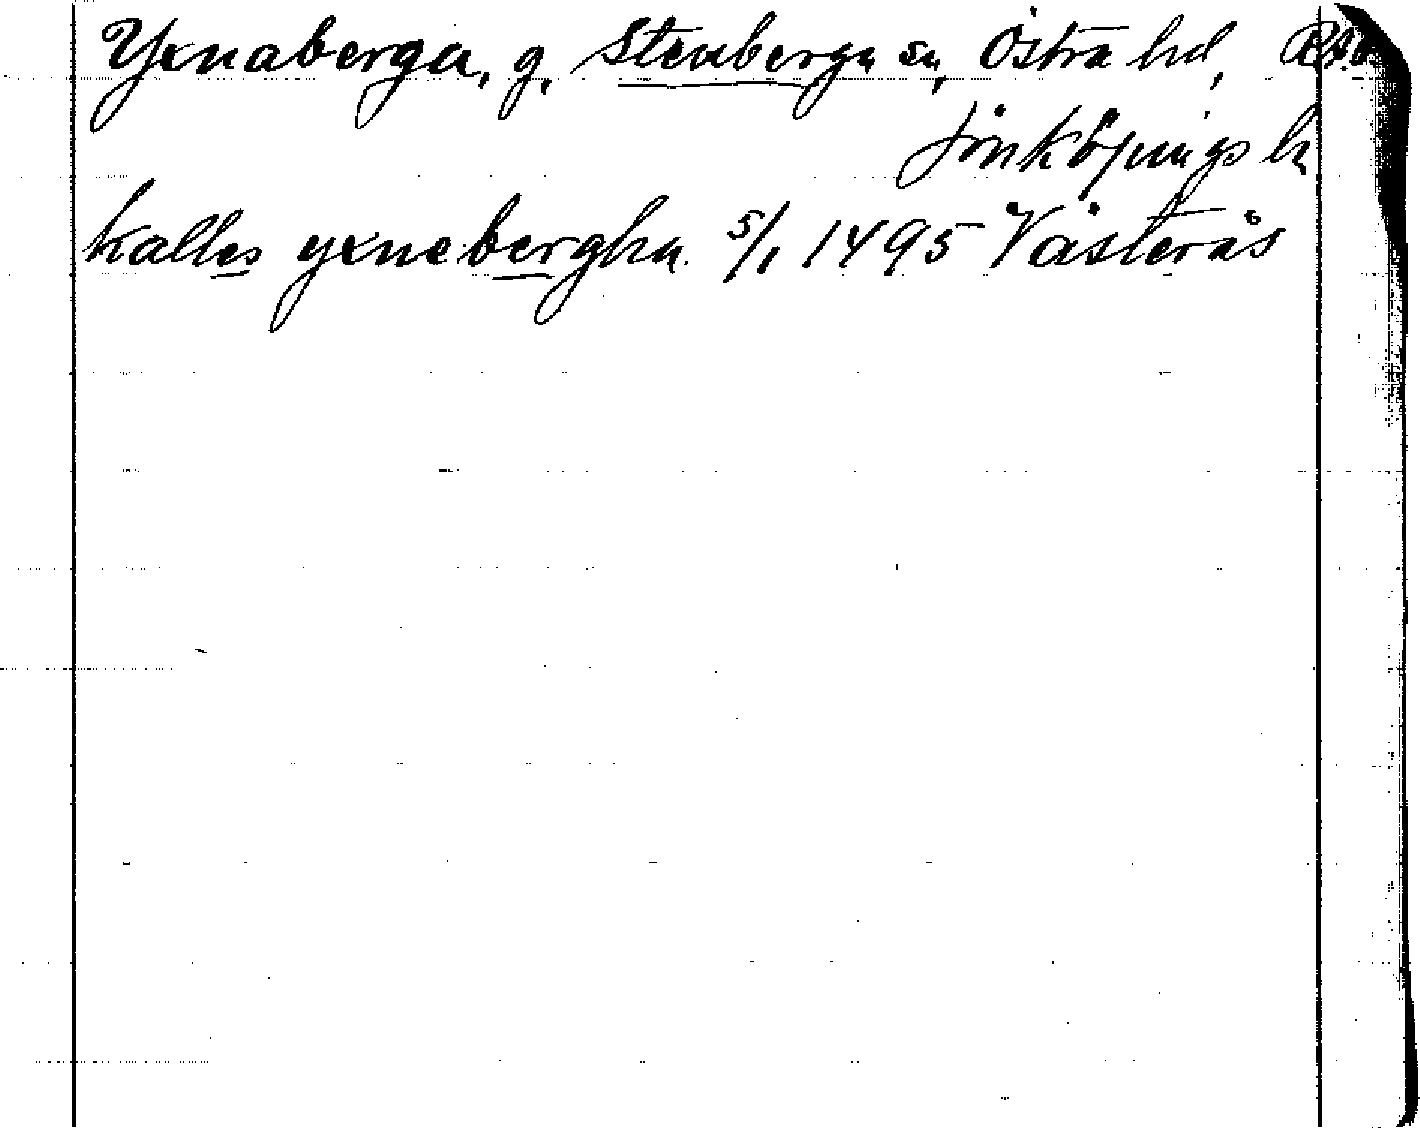 Yxnaberga, g, Stenberga sn, Östra hd, RAp
Jönköpings ln
kalles yxnebergha 5/1 1495 Västerås